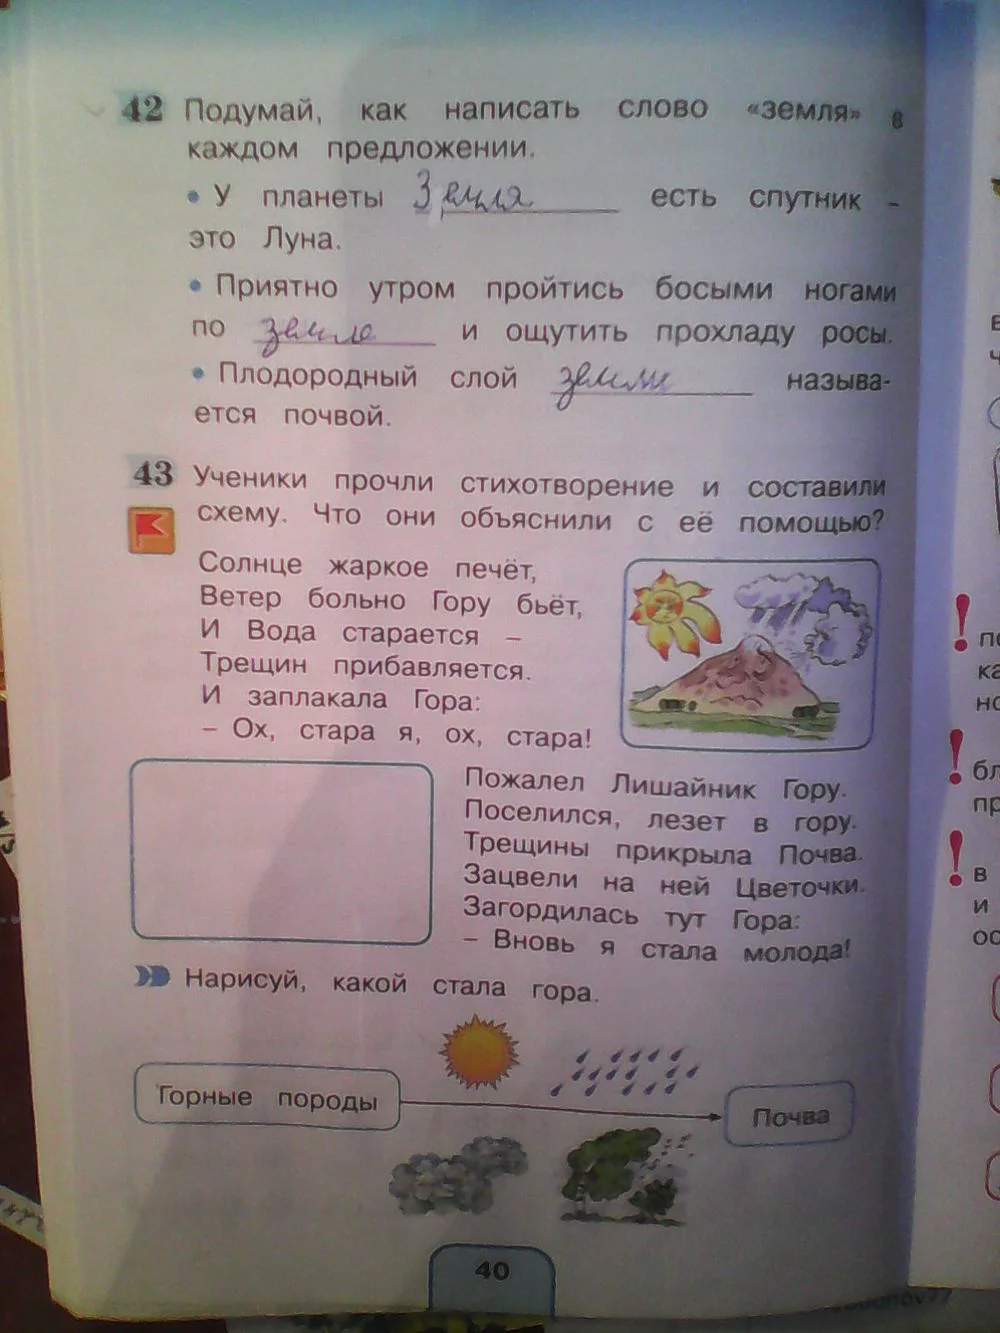 42 Подумай, как написать слово «земля» в
каждом предложении.
• У планеты Земля есть спутник –
это Луна.
• Приятно утром пройтись босыми ногами
по земле и ощутить прохладу росы.
• Плодородный слой земли называ-
ется почвой.
43 Ученики прочли стихотворение и составили
схему. Что они объяснили с её помощью?
Солнце жаркое печёт,
Ветер больно Гору бьёт,
И Вода старается –
Трещин прибавляется.
И заплакала Гора:
– Ох, стара я, ох, стара!
Пожалел Лишайник Гору.
Поселился, лезет в гору.
Трещины прикрыла Почва.
Зацвели на ней Цветочки.
Загордилась тут Гора:
– Вновь я стала молода!
Нарисуй, какой стала гора.
Горные породы
Почва
40